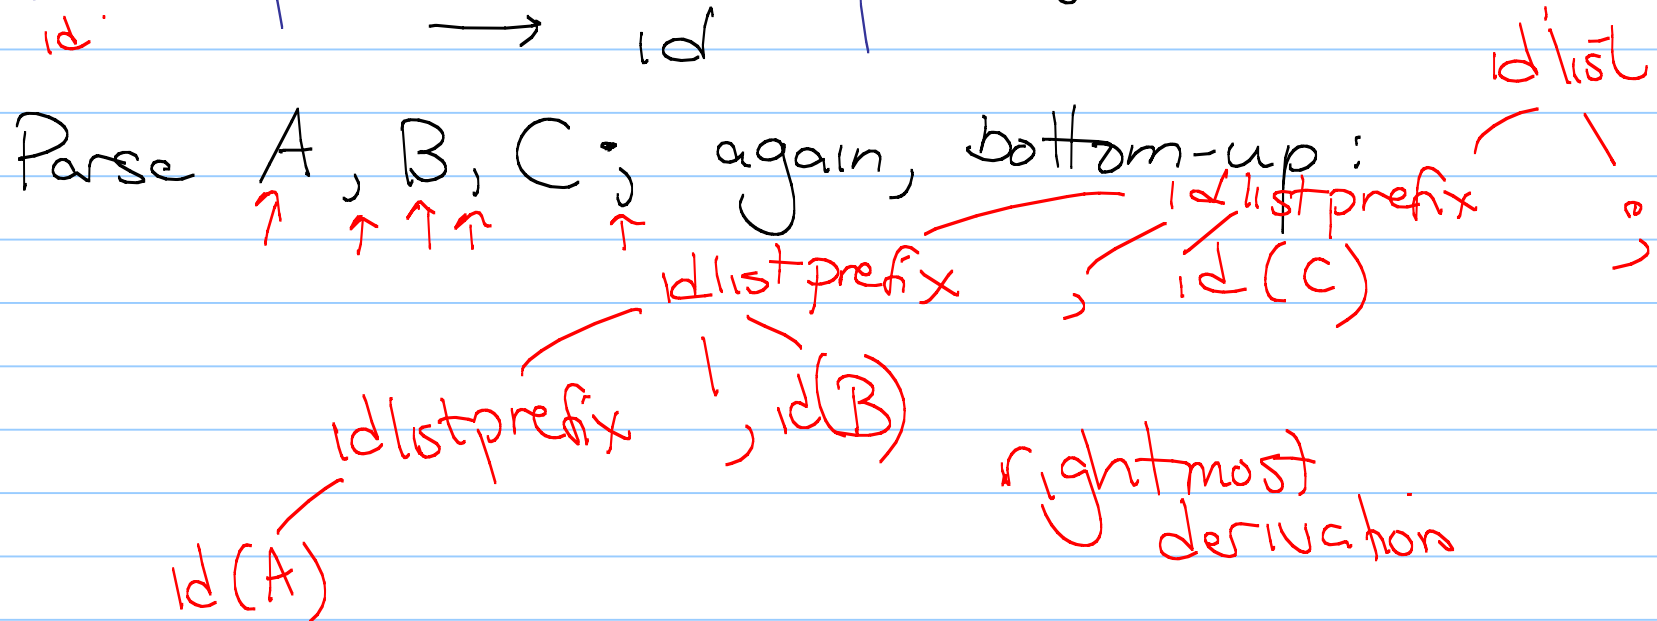 id
→ id
idlist
Parse A , B , C ; again, bottom-up :
idlistprefix ;
idlistprefix , id (C)
idlistprefix , id(B)
rightmost
derivation
id (A)